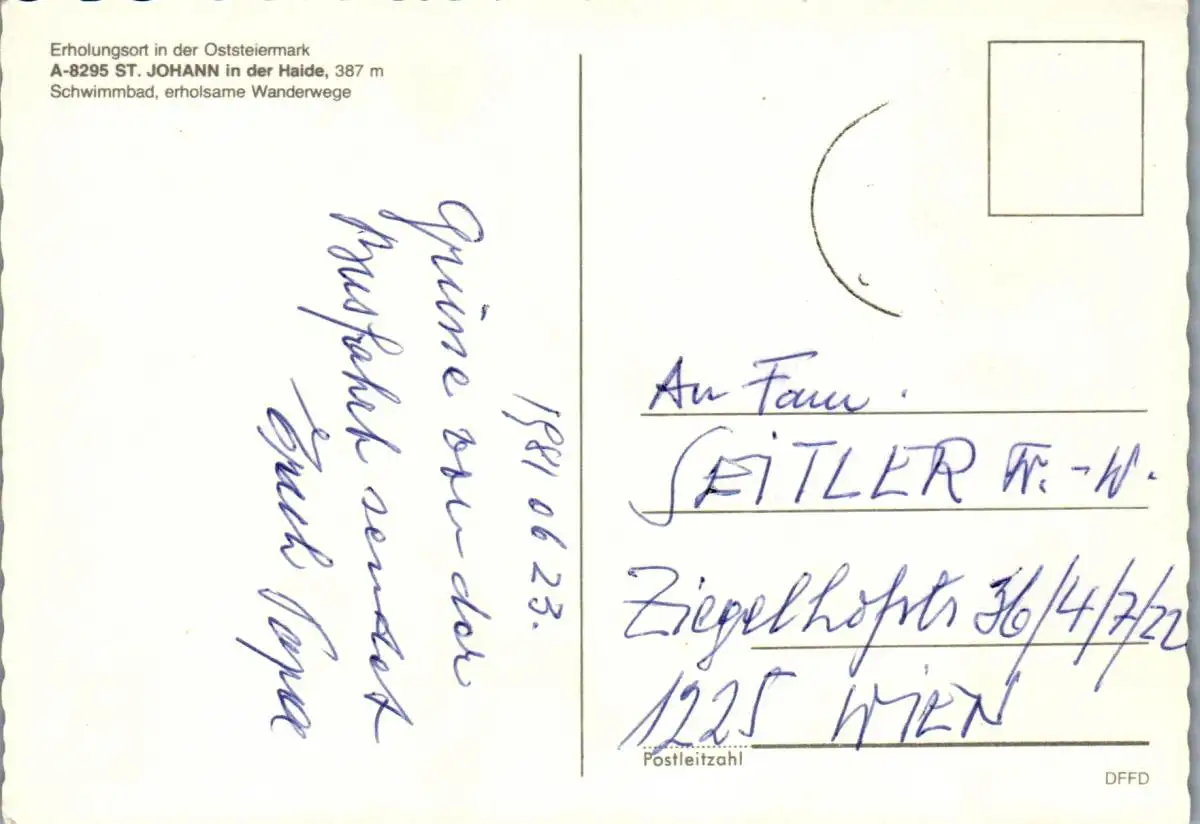 Erholungsort in der Oststeiermark
A-8295 ST. JOHANN in der Haide, 387 m
Schwimmbad, erholsame Wanderwege
1981 06 23.
Grüsse von der
Busfahrt sendet
Euch Papa
An Fam.
SEITLER W.
Ziegelhofstr 36/4/7/22
1225 WIEN
Postleitzahl
DFFD